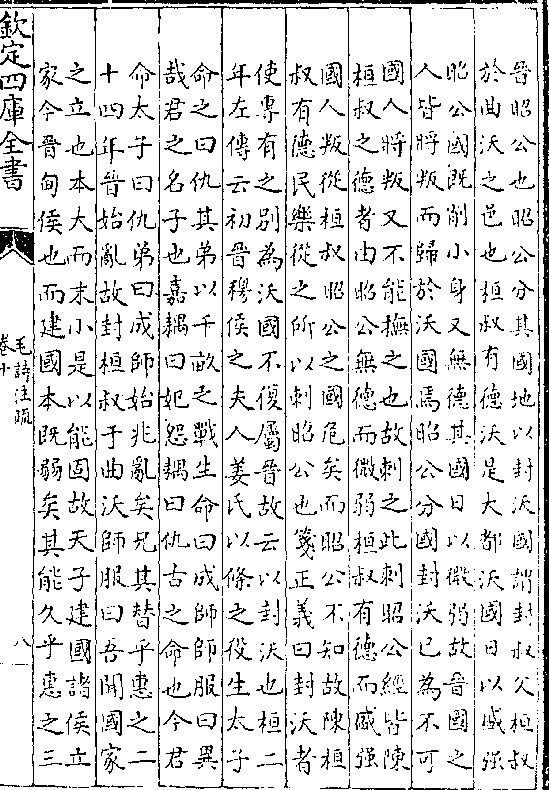 晉昭公也昭公分其國地以封沃國謂封叔父桓叔
於曲沃之邑也桓叔有德沃是大都沃國日以盛强
昭公國既削小身又無德其國日以微弱故晉國之
人皆將叛而歸於沃國焉昭公分國封沃已為不可
國人將叛又不能撫之也故刺之此刺昭公經皆陳
桓叔之德者由昭公無德而微弱桓叔有德而盛强
國人叛從桓叔昭公之國危矣而昭公不知故陳桓
叔有德民樂從之所以刺昭公也箋正義曰封沃者
使專有之别為沃國不復屬晉故云以封沃也桓二
年左傳云初晉穆侯之夫人姜氏以條之役生太子
命之曰仇其弟以千畝之戰生命曰成師師服曰異
哉君之名子也嘉耦曰妃怨耦曰仇古之命也今君
命太子曰仇弟曰成師始兆亂矣兄其替乎惠之二
十四年晉始亂故封桓叔于曲沃師服曰吾聞國家
之立也本大而末小是以能固故天子建國諸侯立
家今晉甸侯也而建國本既弱矣其能久乎惠之三
欽定四庫全書
毛詩注疏
卷十
八